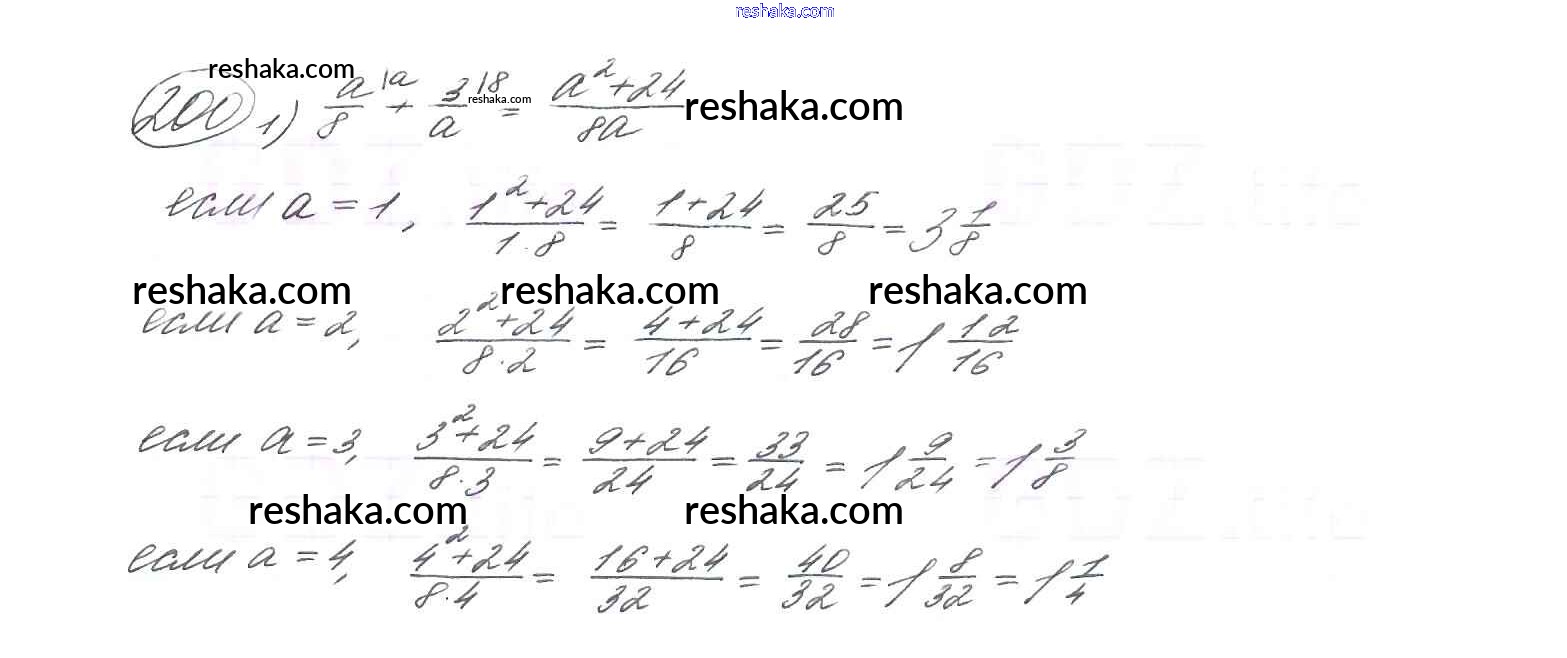 reshaka.com
reshaka.com
200 1) a/8 |a + 3/a |8 = (a² + 24)/(8a)
reshaka.com reshaka.com
если a = 1, (1² + 24)/(1 · 8) = (1 + 24)/8 = 25/8 = 3 1/8
reshaka.com reshaka.com reshaka.com
если a = 2, (2² + 24)/(8 · 2) = (4 + 24)/16 = 28/16 = 1 12/16
если a = 3, (3² + 24)/(8 · 3) = (9 + 24)/24 = 33/24 = 1 9/24 = 1 3/8
reshaka.com reshaka.com
если a = 4, (4² + 24)/(8 · 4) = (16 + 24)/32 = 40/32 = 1 8/32 = 1 1/4